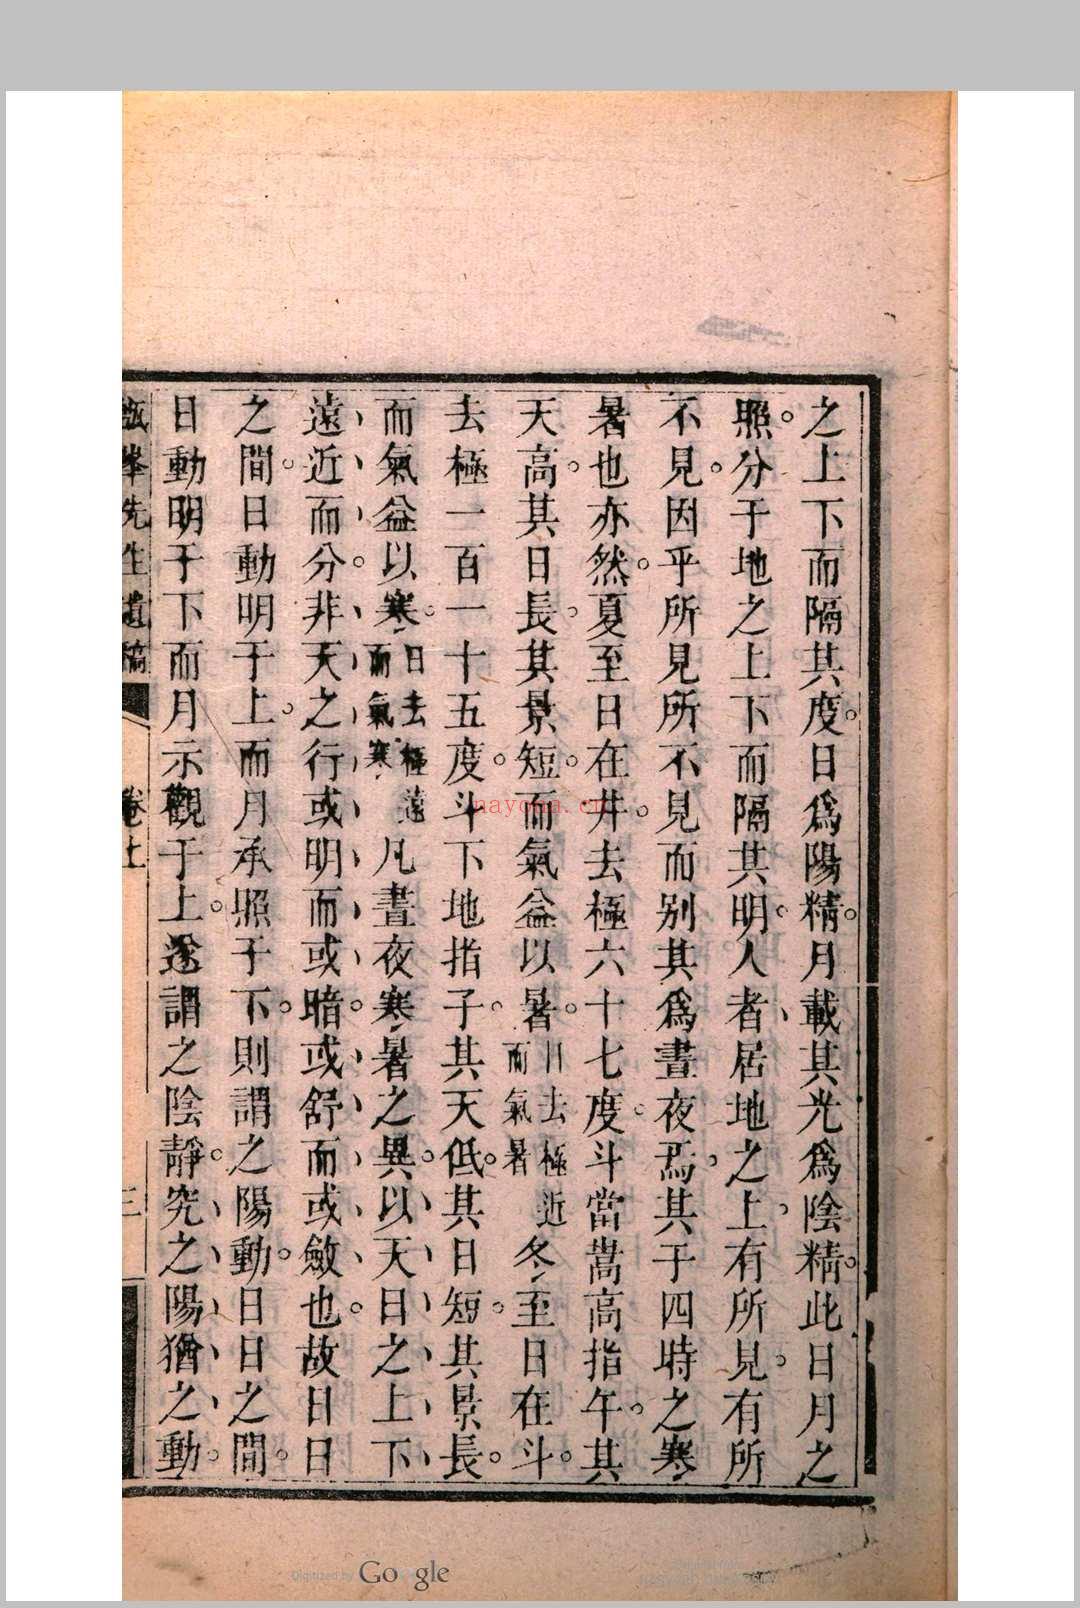 之上下而隔其度。日爲陽精。月載其光爲陰精。此日月之
照。分于地之上下而隔其明。人者、居地之上、有所見。有所
不見。因乎所見所不見而别其爲晝夜焉、其于四時之寒
暑也亦然。夏至日在井。去極六十七度。斗當嵩高指午。其
天高。其日長。其景短。而氣益以暑。日去極近而氣暑冬至日在斗。
去極一百一十五度。斗下地指子。其天低。其日短。其景長。
而氣益以寒。日去極遠而氣寒凡晝夜寒暑之異。以天日之上下
遠近而分。非天之行或明而或暗。或舒而或斂也。故日日
之間。日動明于上。而月承照于下。則謂之陽動。日日之間。
日動明于下而月示觀于上。遂謂之陰靜。究之陽猶之動。
先生遺稿
卷上
三
nayona.cn
Digitized by Google